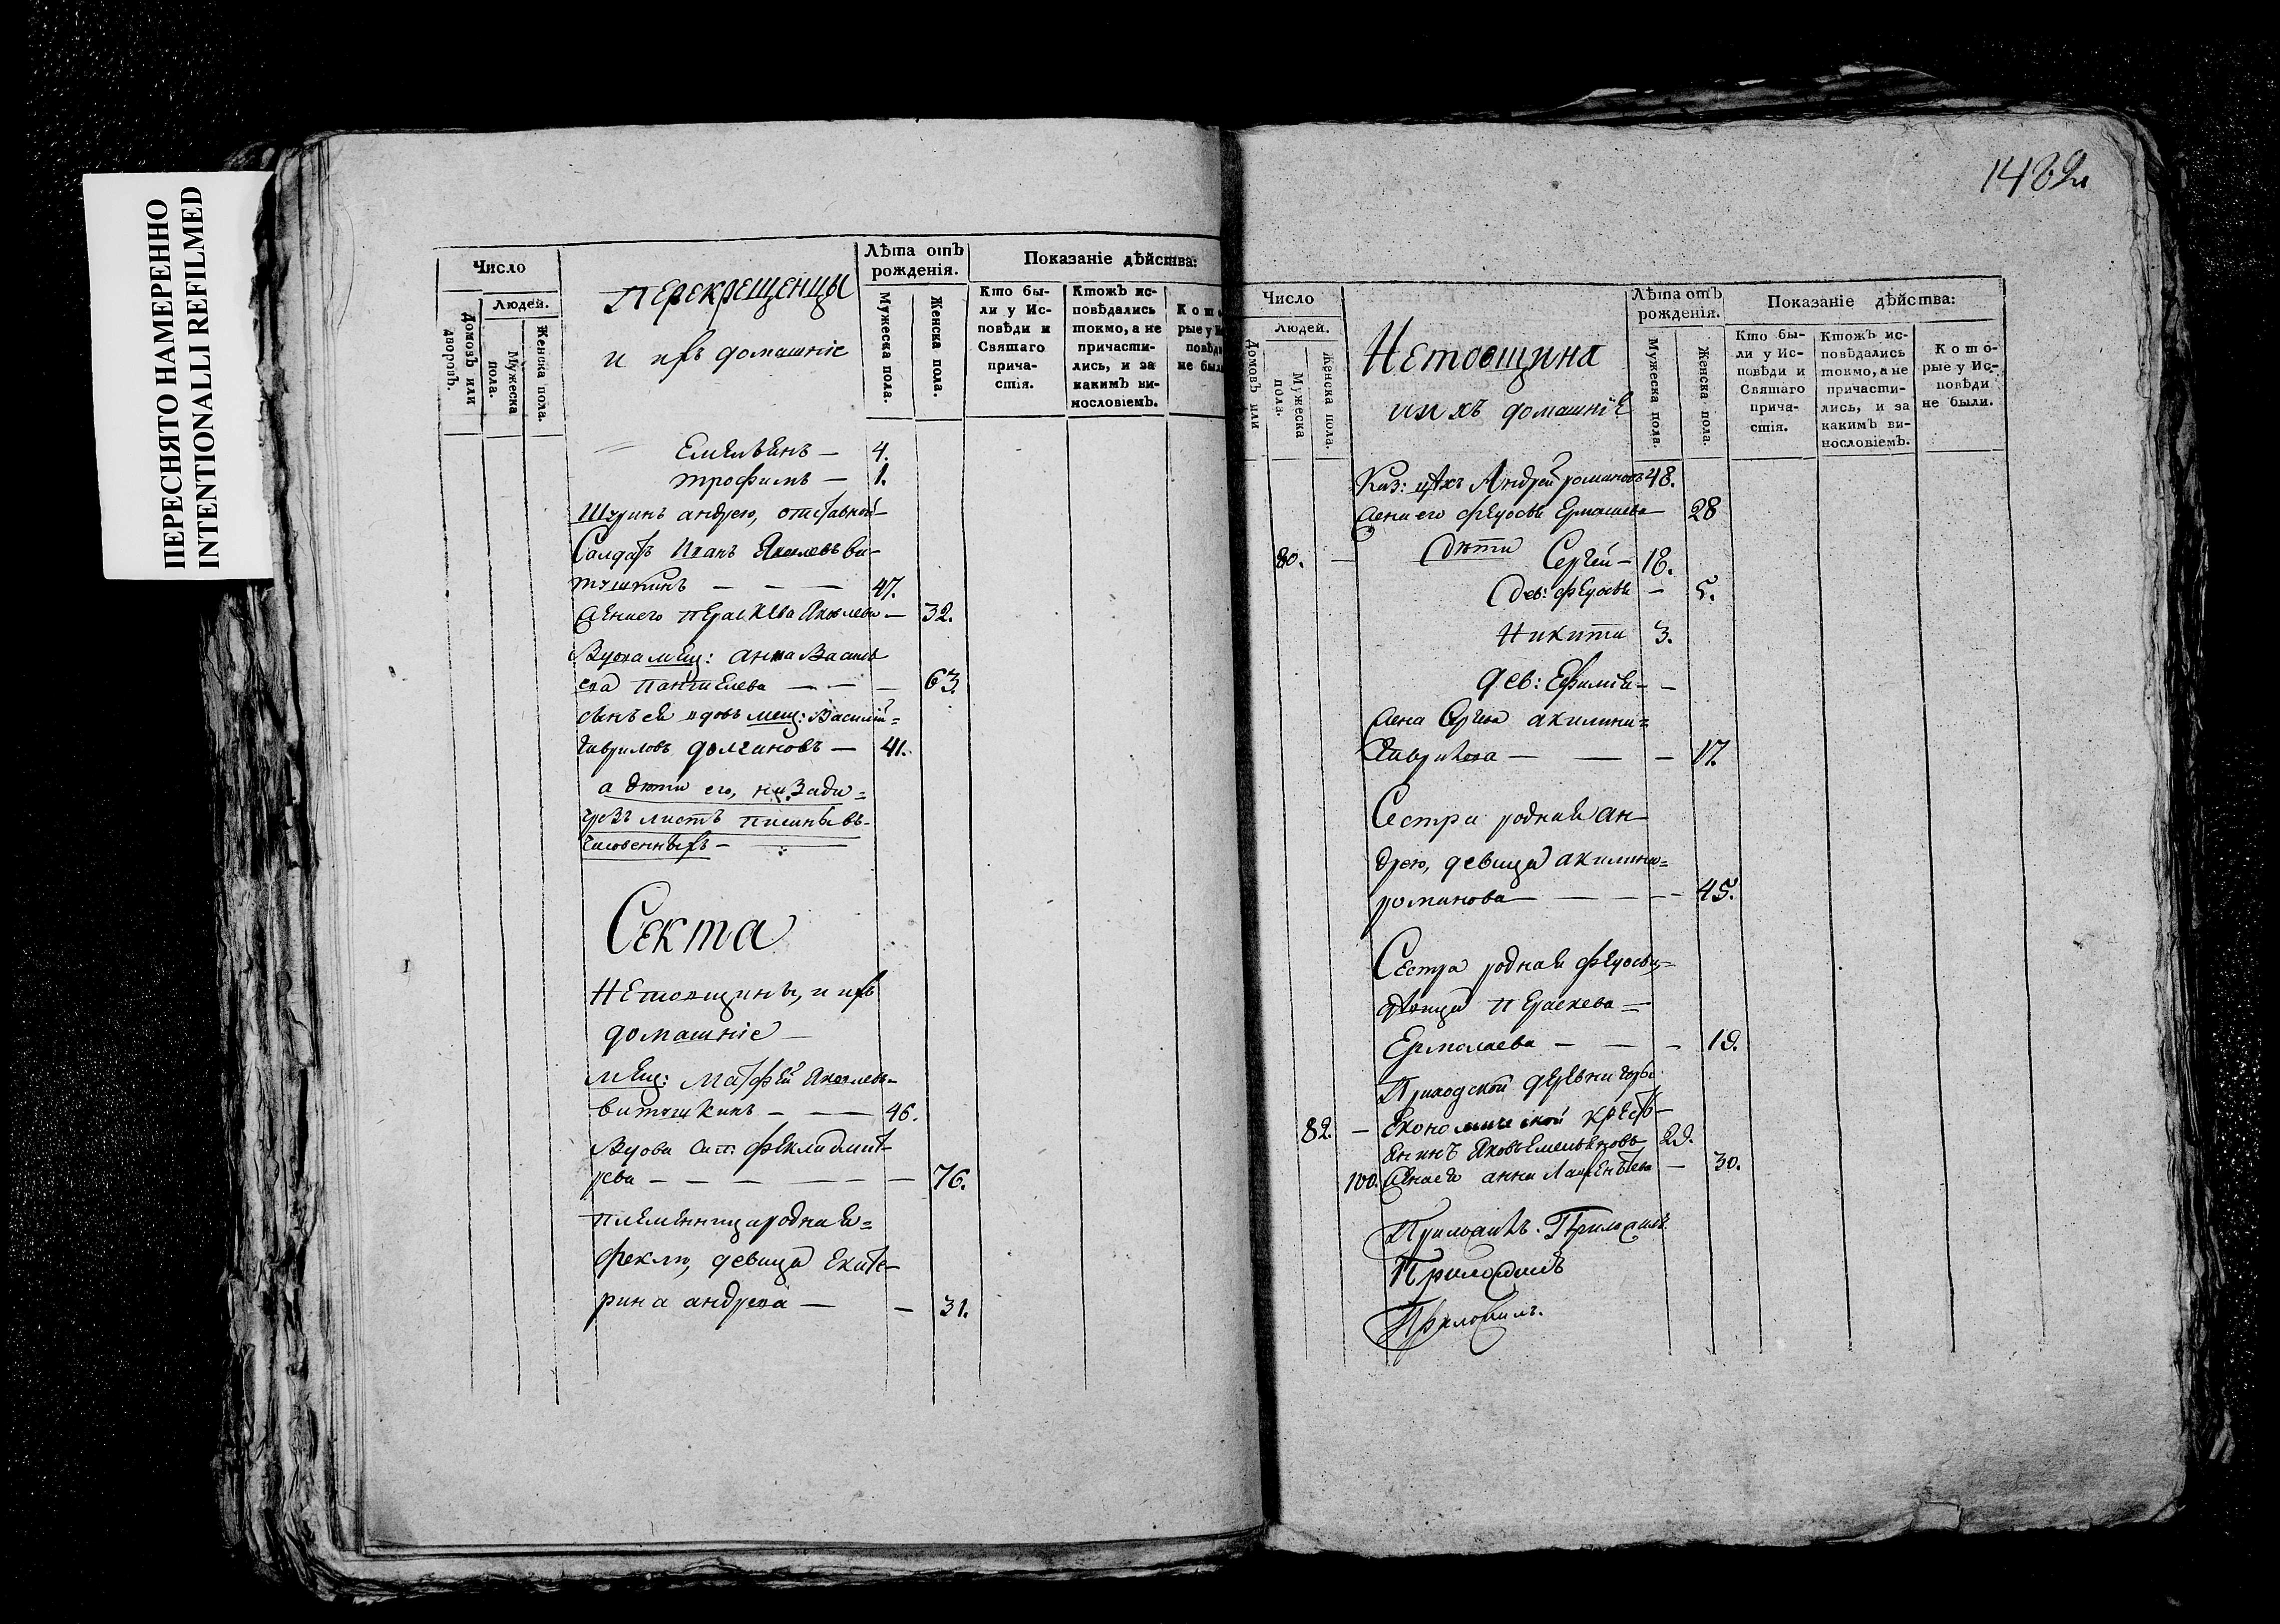 ПЕРЕСНЯТО НАМЕРЕННО
INTENTIONALLI REFILMED
Число
Людей.
Домовъ или дворовъ.
Мужеска пола.
Женска пола.
Перекрещенцы
и ихъ домашніе
Лѣта отъ рожденія.
Мужеска пола.
Женска пола.
Показаніе дѣйства:
Кто бы-
ли у Ис-
повѣди и
Святаго
прича-
стія.
Ктожъ ис-
повѣдались
токмо, а не
причасти-
лись, и за
какимъ ви-
нословіемъ.
Емельянъ — 4.
трофимъ — 1.
Шуринъ андрею, отставной
Солдатъ Иванъ Яковлевъ ви-
тушкинъ — — — 47.
Жена его Параскева Яковлева — 32.
Вдова мещ: анна Василь
ева Пантиелева — — — 63.
сынъ ея вдовъ мещ: Василій=
Гавриловъ долгановъ — 41.
а дѣти его, на зади=
листъ писаны въ
Секта
Нетовщины, и ихъ
домашніе —
мещ: Матфей Яковлевъ
витушкинъ — — 46.
Вдова Фекла дмит
рева — — — — — — 76.
племянница родная=
Фекли, девица Екате-
рина андрева — — 31.
148
Число
Людей.
Домовъ или
Мужеска пола.
Женска пола.
Нетовщина
и ихъ домашніе
Лѣта отъ рожденія.
Мужеска пола.
Женска пола.
Показаніе дѣйства:
Кто бы-
ли у Ис-
повѣди и
Святаго
прича-
стія.
Ктожъ ис-
повѣдались
токмо, а не
причасти-
лись, и за
какимъ ви-
нословіемъ.
Кото-
рые у Ис-
повѣди
не были.
Андрей романовъ 48.
Жена его Федосья 28
80. — Дѣти Сергей — 18.
Дев: федосья — 5.
Никита 3.
дев: Ефимія — —
Жена Сергева акилина=
Гаврилова — — — 17.
Сестра родная ан
дрею, девица акилина=
романова — — — — 45.
Сестра родная федосьи,=
девица Параскева —
Ермолаева — — — 19.
Приходской деревни
82. — Економической крестъ-
янинъ Яковъ Емельяновъ 29.
100. Жена его анна Лаврентьева — 30.